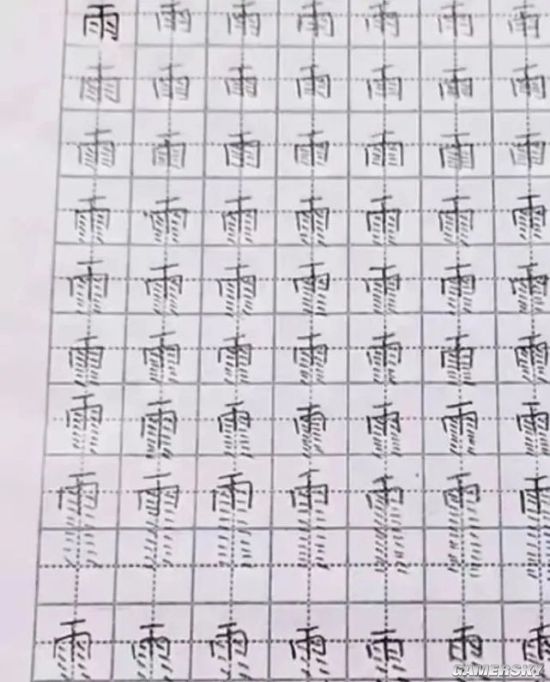 雨雨雨雨雨雨雨
雨雨雨雨雨雨雨
雨雨雨雨雨雨雨
雨雨雨雨雨雨雨
雨雨雨雨雨雨雨
雨雨雨雨雨雨雨
雨雨雨雨雨雨雨
雨雨雨雨雨雨雨
雨雨雨雨雨雨雨
GAMERSKY